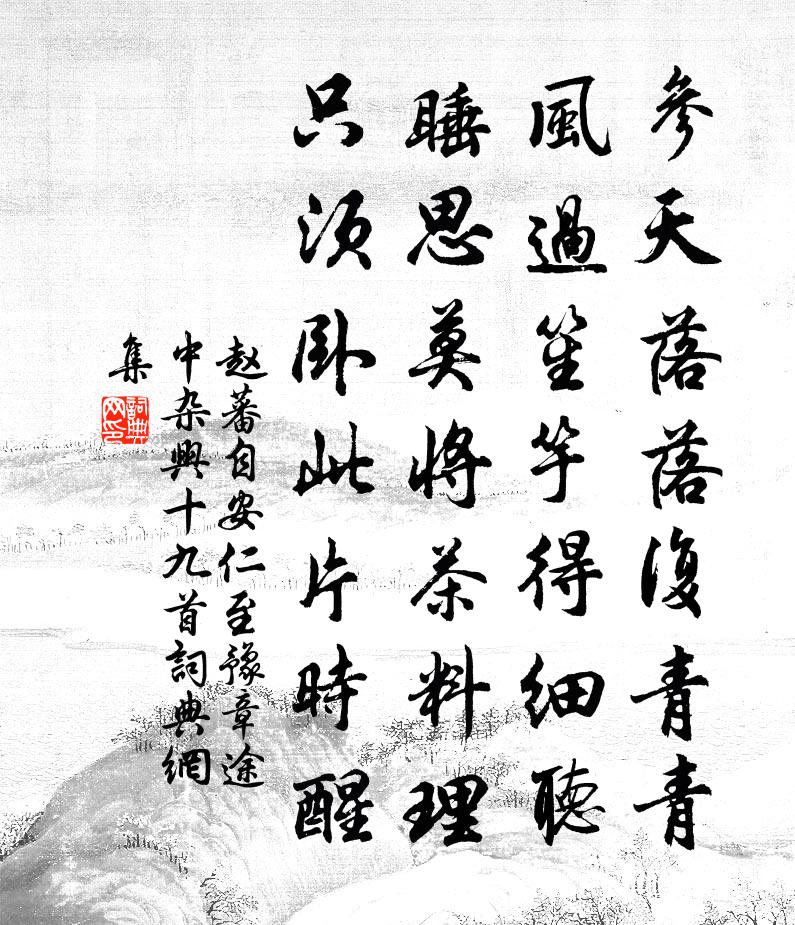 參天落落復青青
風過笙竽得細聽
睡思莫將茶料理
只須臥此片時醒
赵蕃自安仁至豫章途
中杂興十九首詞典網
集
詞典
网印